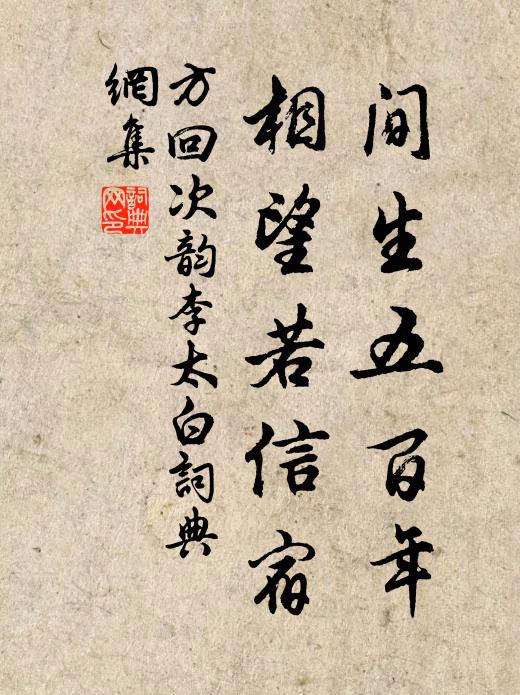 间生五百年
相望若信宿
方回次韵李太白詞典
網集
詞典
网印